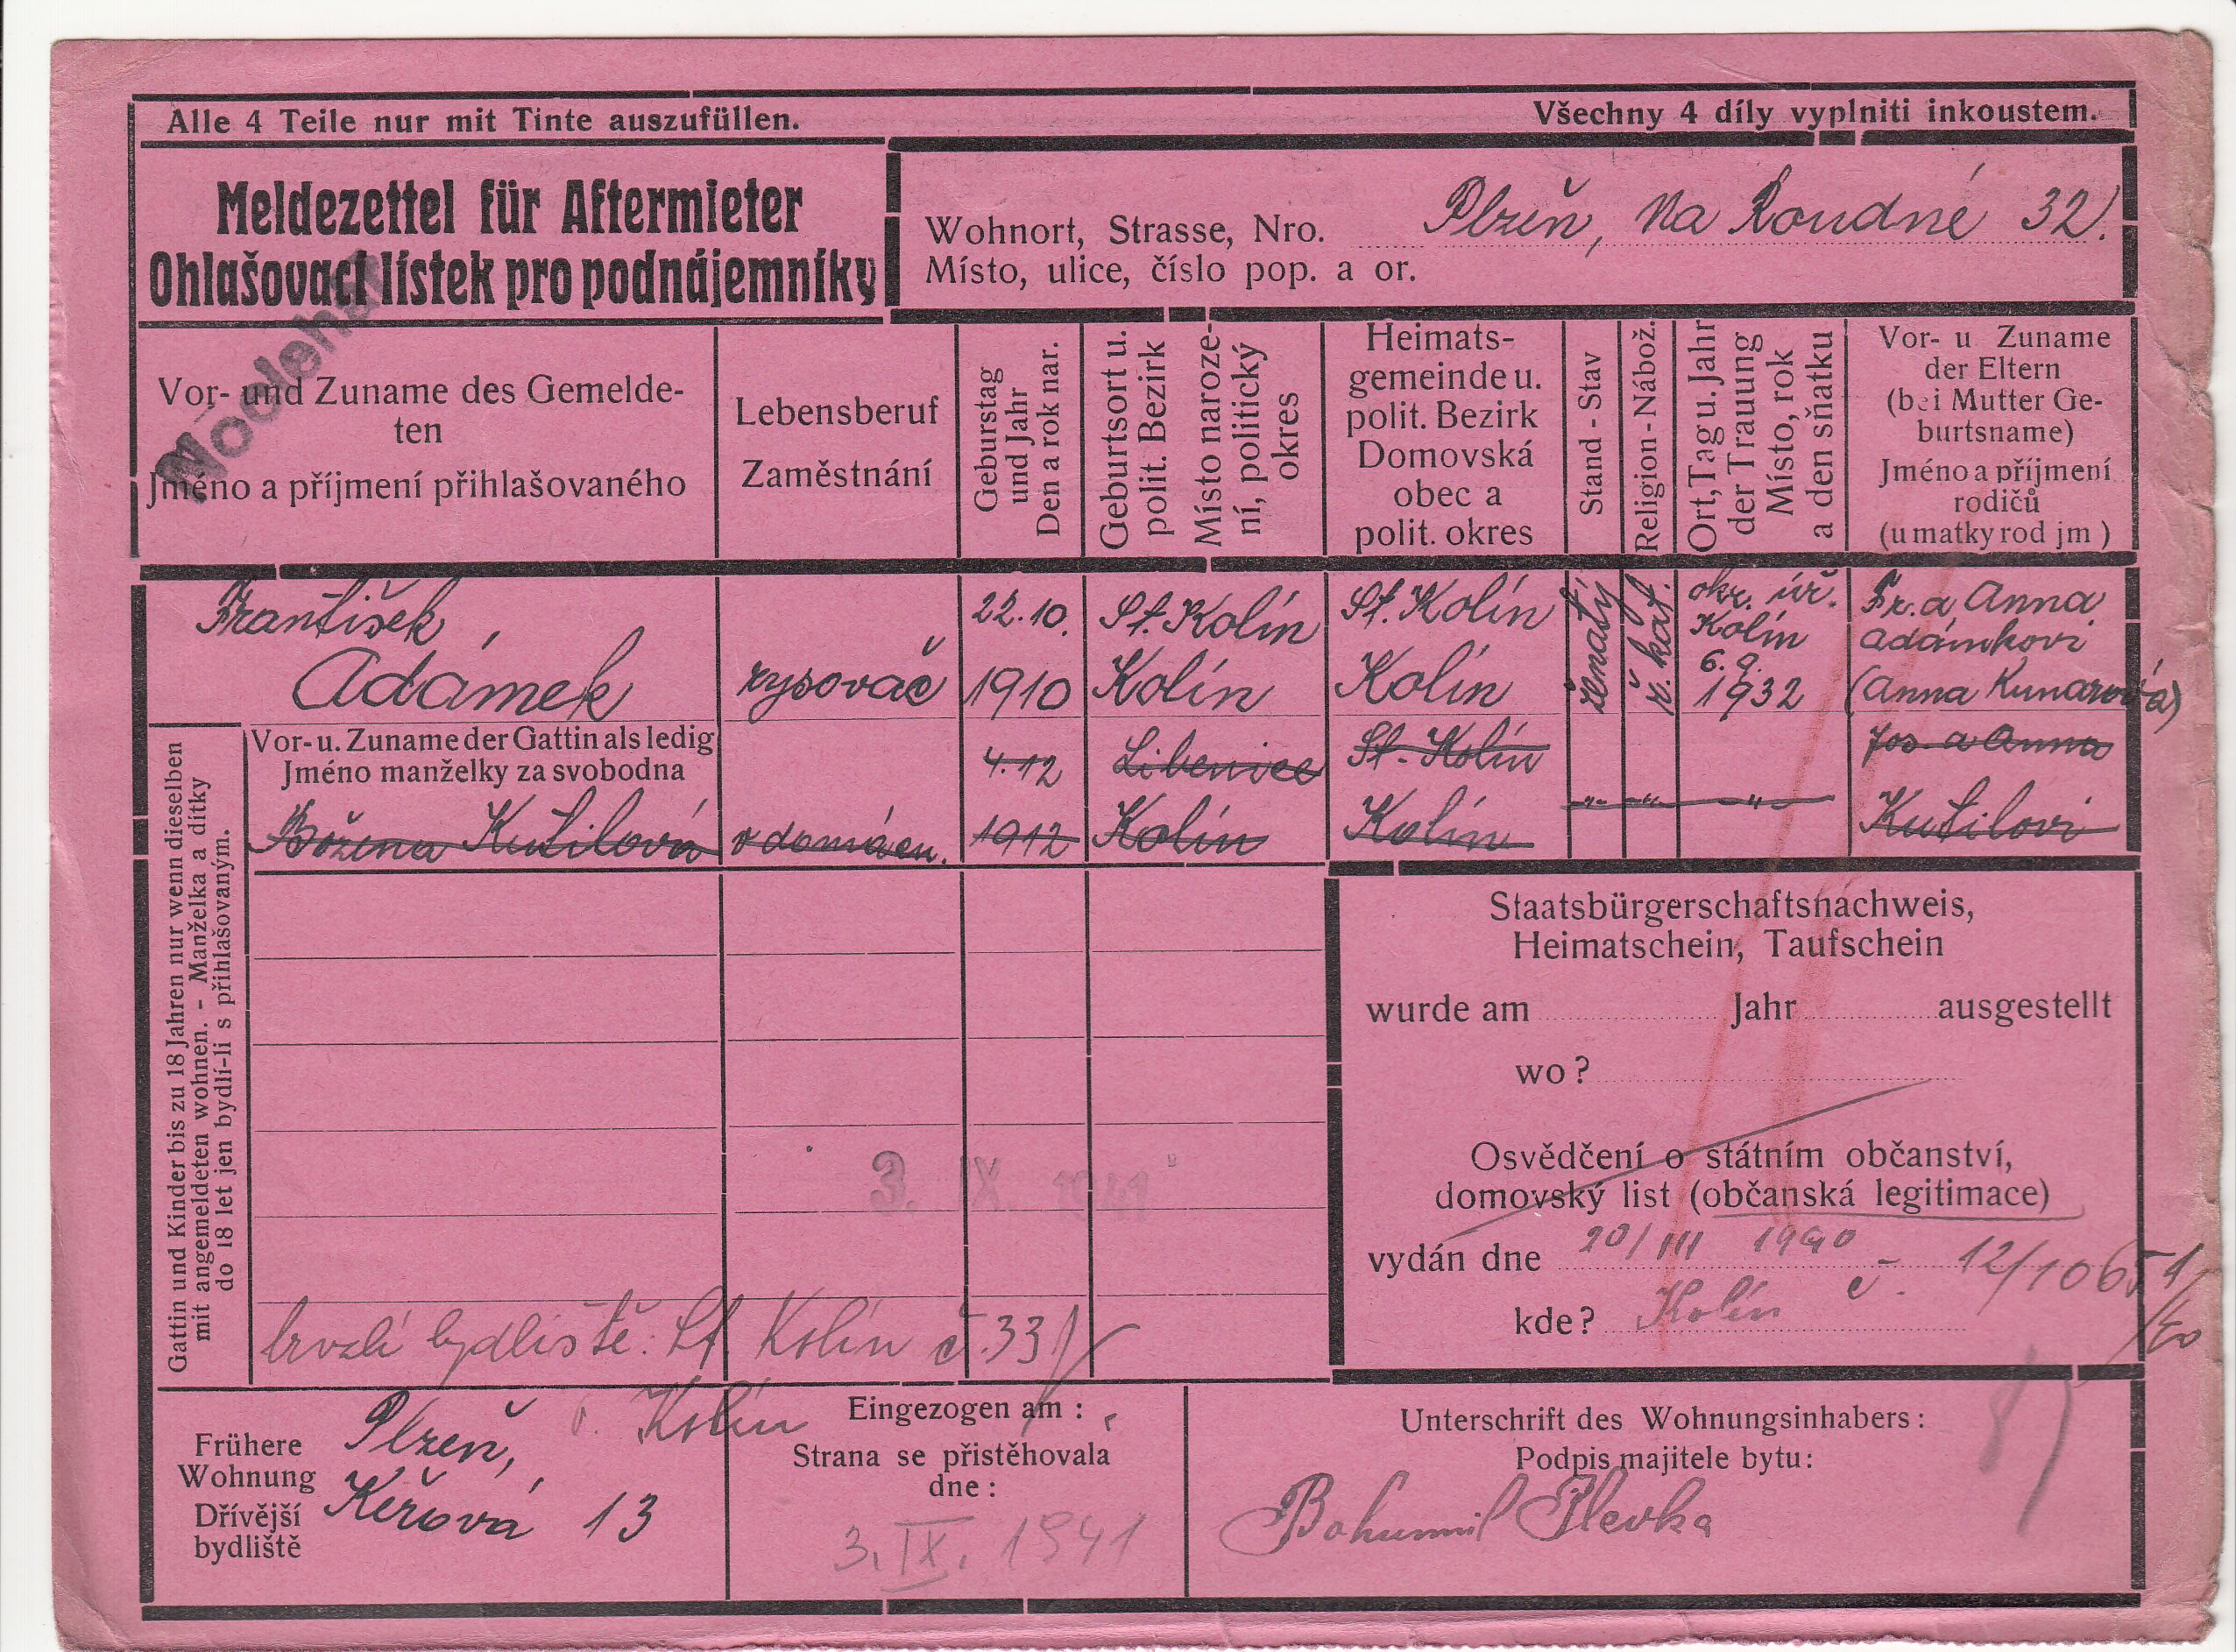 Alle 4 Teile nur mit Tinte auszufüllen.
Všechny 4 díly vyplniti inkoustem.
Meldezettel für Aftermieter
Ohlašovací lístek pro podnájemníky
Wohnort, Strasse, Nro.
Místo, ulice, číslo pop. a or.
Plzeň, Na Roudné 32.
Vor- und Zuname des Gemelde-
ten
Jméno a příjmení přihlašovaného
Lebensberuf
Zaměstnání
Geburstag
und Jahr
Den a rok nar.
Geburtsort u.
polit. Bezirk
Místo naroze-
ní, politický
okres
Heimats-
gemeinde u.
polit. Bezirk
Domovská
obec a
polit. okres
Stand - Stav
Religion - Nábož.
Ort, Tag u. Jahr
der Trauung
Místo, rok
a den sňatku
Vor- u Zuname
der Eltern
(bei Mutter Ge-
burtsname)
Jméno a příjmení
rodičů
(u matky rod jm )
František
Adámek
rysovač
22.10.
1910
St. Kolín
Kolín
St. Kolín
Kolín
ženatý
ř. kat.
okr. úř.
Kolín
6. 9.
1932
Fr. a Anna
Adámkovi
(Anna Kunarová)
Vor- u. Zuname der Gattin als ledig
Jméno manželky za svobodna
Božena Kutilová
v domácn.
4.12
1912
Libenice
Kolín
St. Kolín
Kolín
-"- -"- -"-
Jos. a Anna
Kutilovi
Gattin und Kinder bis zu 18 Jahren nur wenn dieselben
mit angemeldeten wohnen. - Manželka a dítky
do 18 let jen bydlí-li s přihlašovaným.
3. IX. 1941
Staatsbürgerschaftsnachweis,
Heimatschein, Taufschein
wurde am Jahr ausgestellt
wo?
Osvědčení o státním občanství,
domovský list (občanská legitimace)
vydán dne 20/III 1940
kde? Kolín č. 12/10651/40
trvalé bydliště: St. Kolín č. 331
Kolín
Frühere
Wohnung
Dřívější
bydliště
Plzeň,
Keřová 13
Eingezogen am :
Strana se přistěhovala
dne :
3. IX. 1941
Unterschrift des Wohnungsinhabers :
Podpis majitele bytu :
Bohumil Plevka